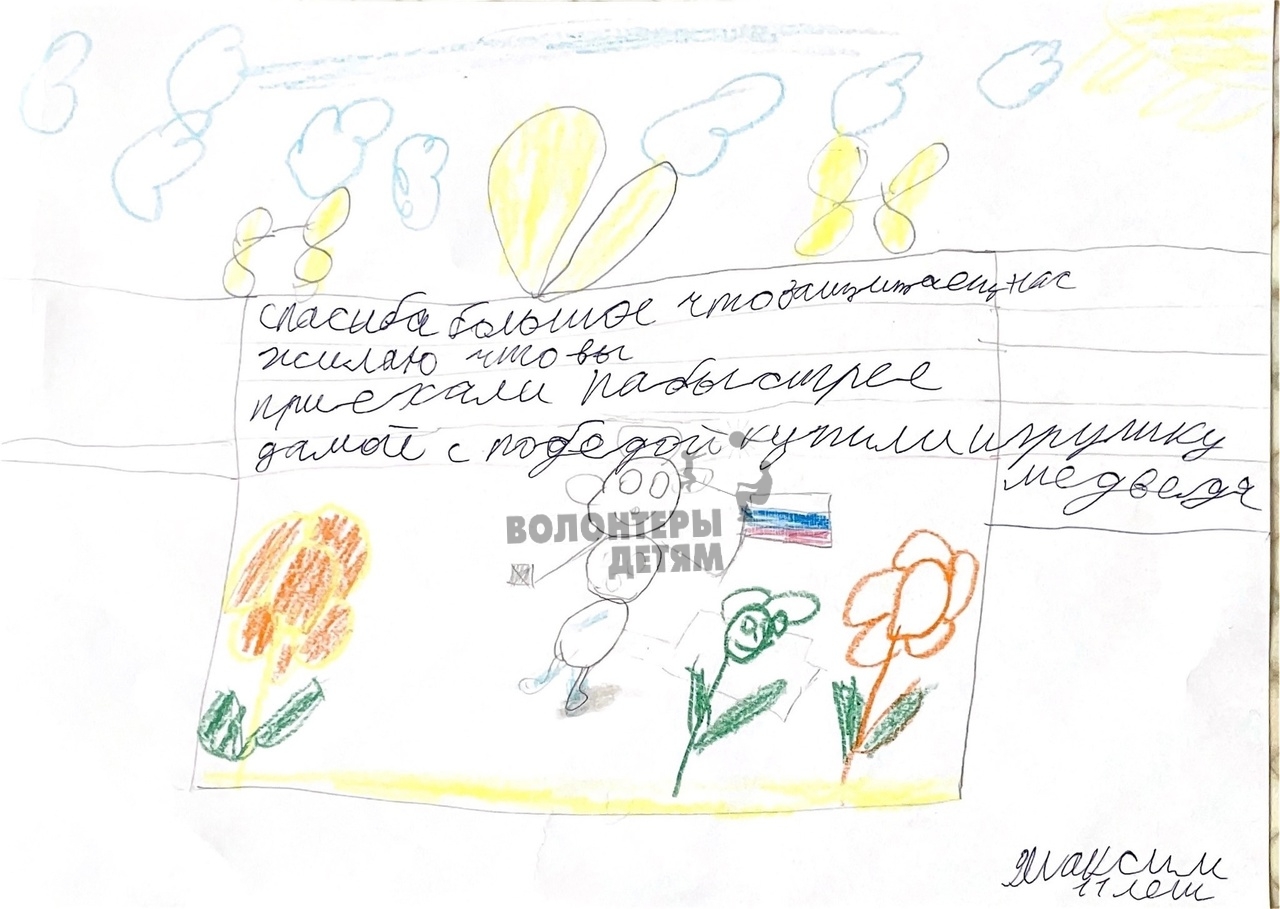 спасиба большое что защищаещ нас
жилаю что вы
приехали пабыстрее
дамой с победой купили игрушку
медведя
ВОЛОНТЕРЫ
ДЕТЯМ
Максим
11 лет